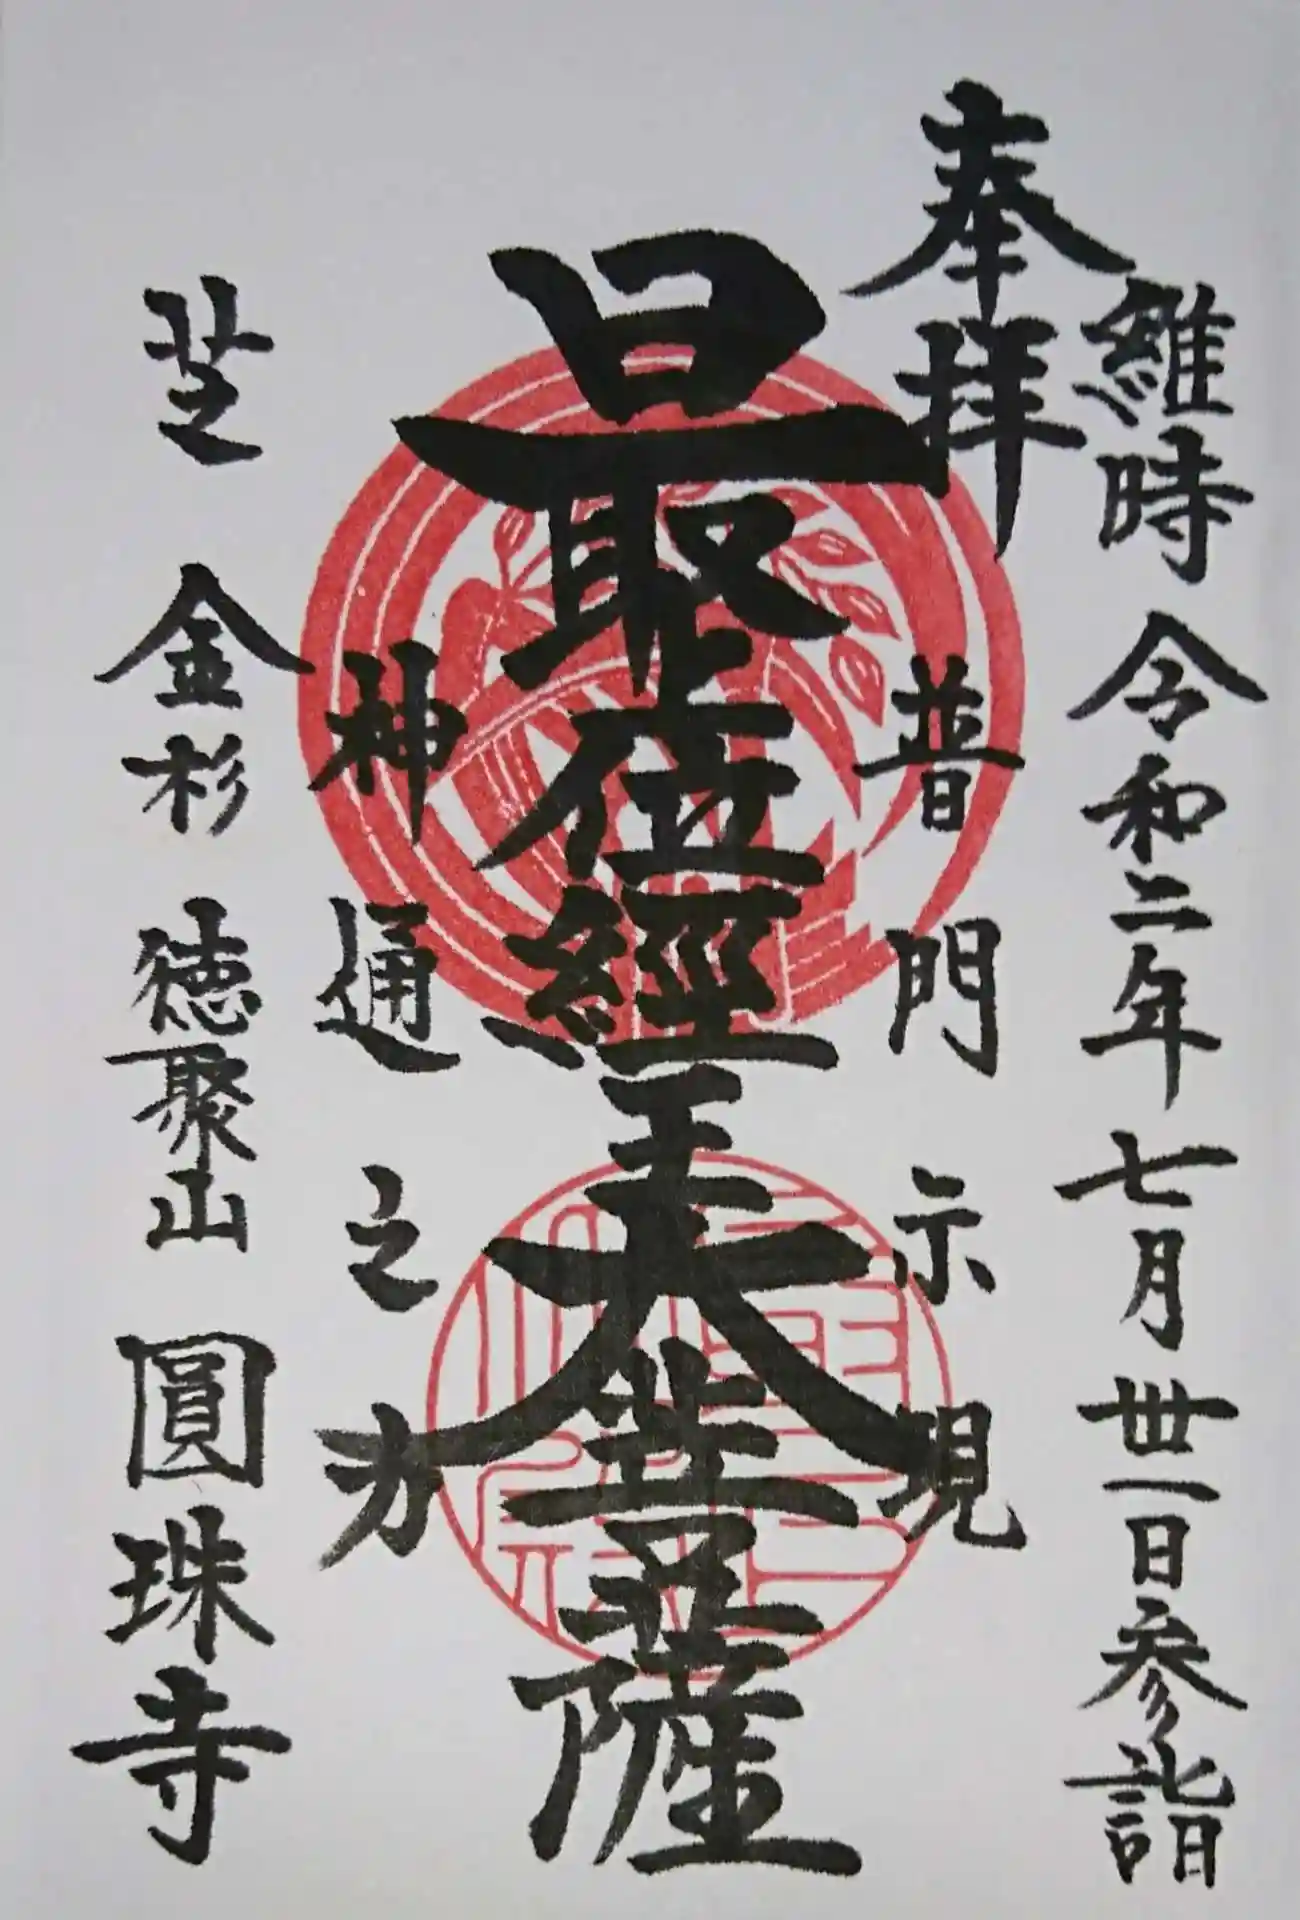 奉拝
維時 令和二年 七月 丗一日 参詣
普門示現
最上位經王大菩薩
神通之力
芝 金杉 徳聚山 圓珠寺